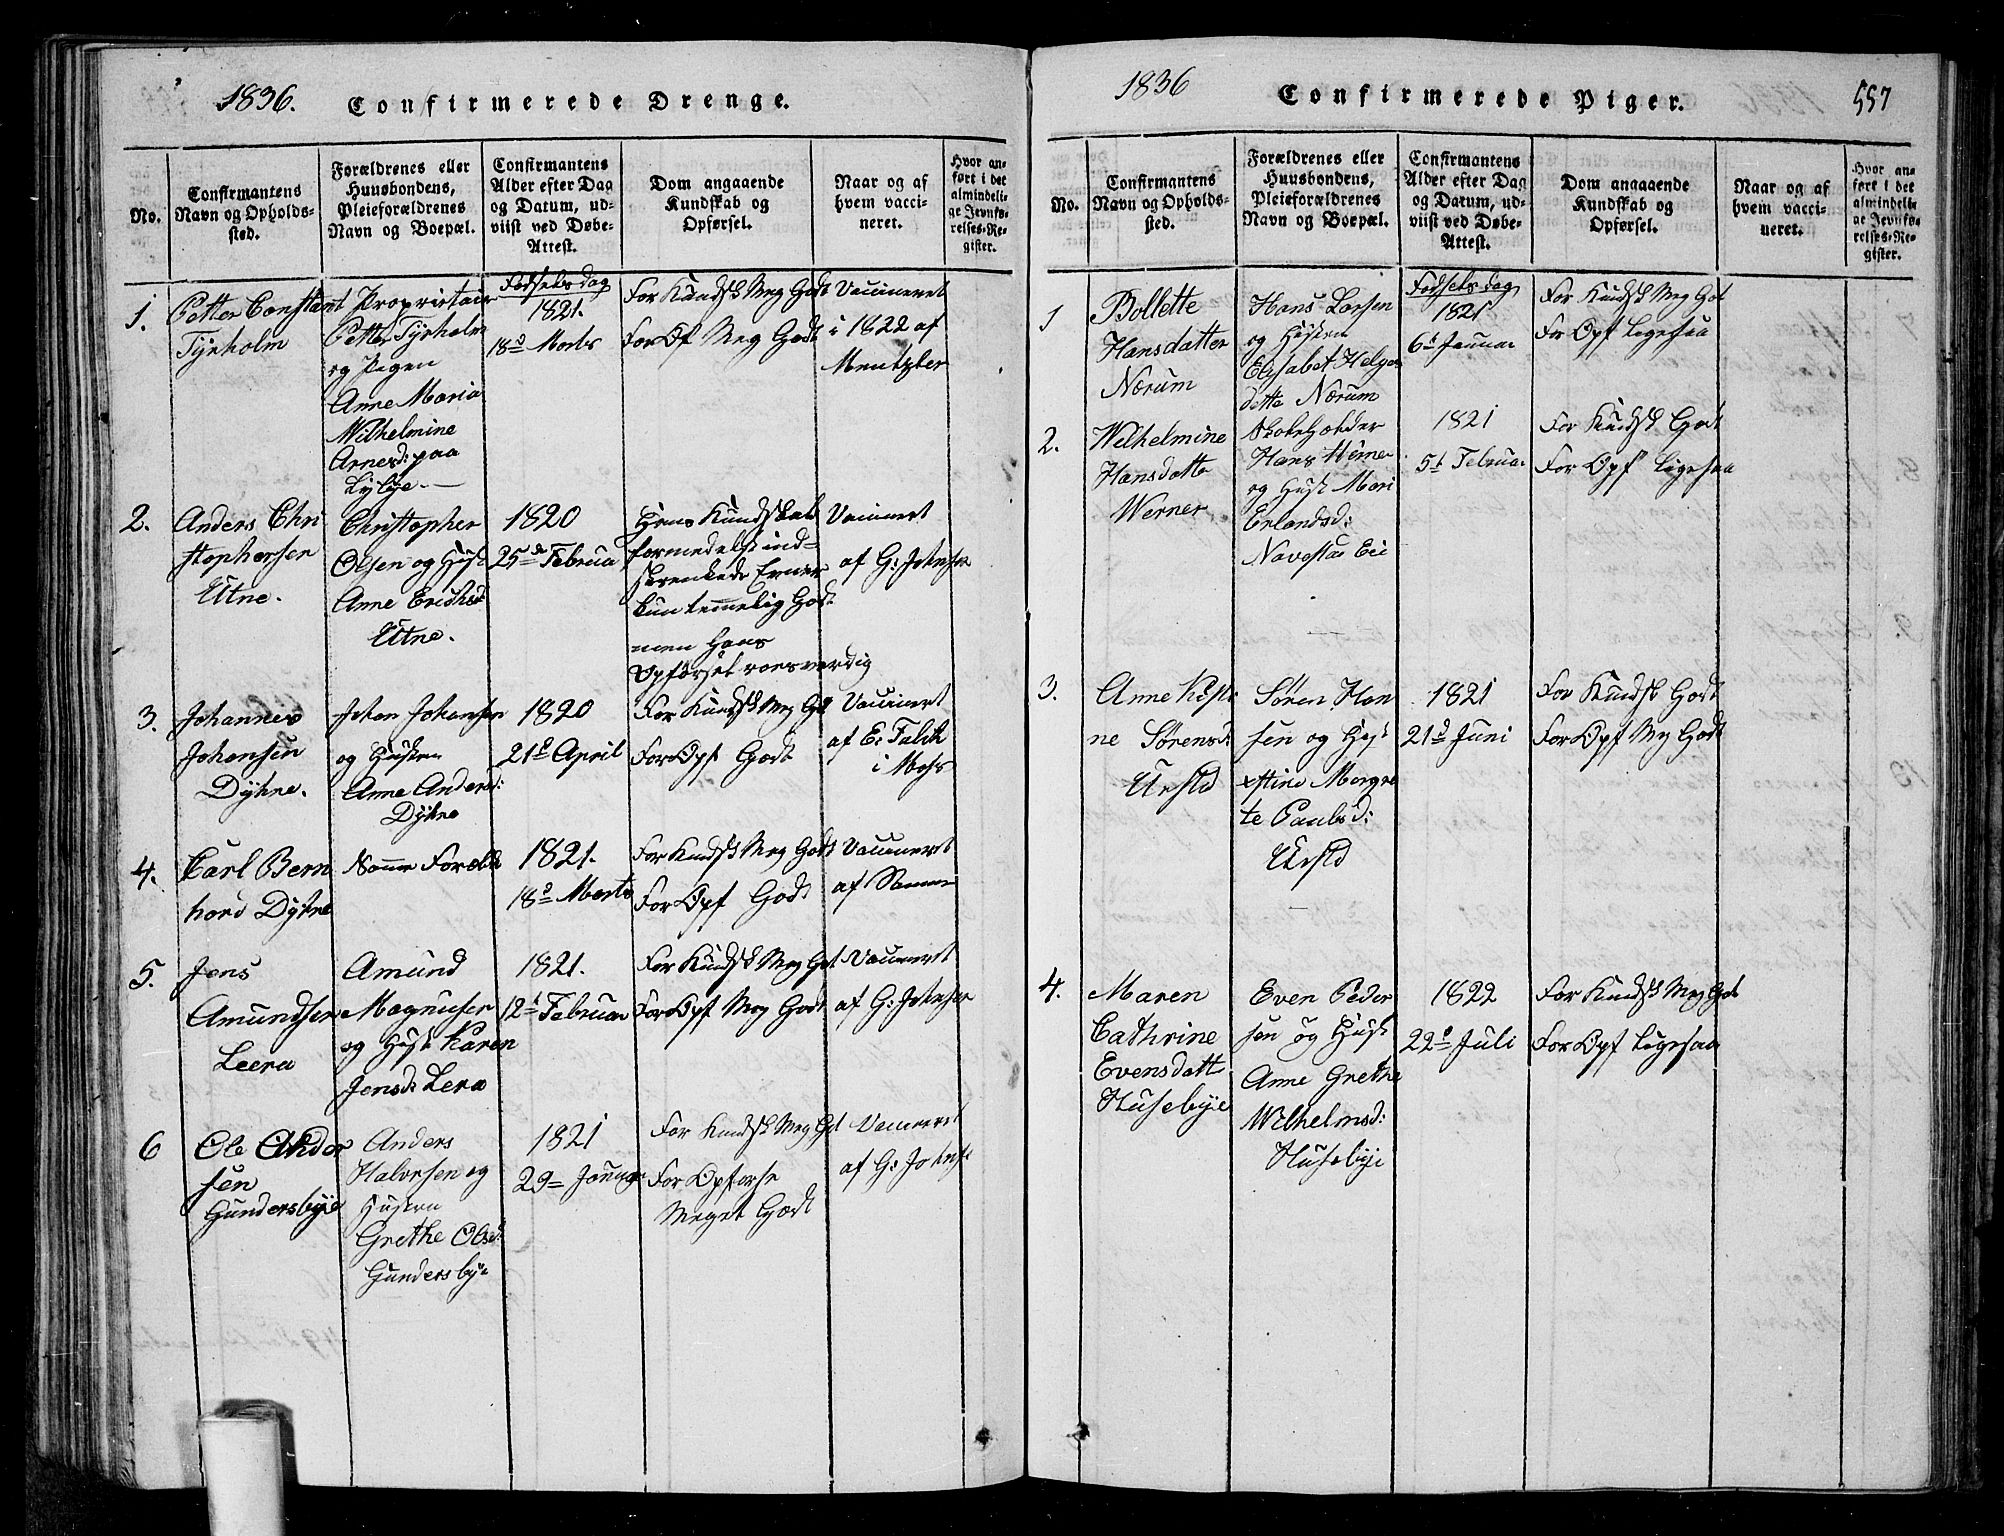 1836. Confirmerede Drenge.
No.
Confirmantens
Navn og Opholds-
sted.
Forældrenes eller
Huusbondens,
Pleieforældrenes
Navn og Boepæl.
Confirmantens
Alder efter Dag
og Datum, ud-
viist ved Døbe-
Attest.
Dom angaaende
Kundskab og
Opførsel.
Naar og af
hvem vacci-
neret.
Hvor an-
ført i det
almindeli-
ge Jevnfø-
relses-Re-
gister.
1.
Petter Constant
Tyrholm
Proprietair
Petter Tyrholm
og Pigen
Anne Maria
Wilhelmine
Arnesd: paa
Lybye.
Fødselsdag
1821.
18d Marts
For Kundsk Meg Godt
For Opf Meg Godt
Vaccineret
i 1822 af
Mentzler
2.
Anders Chri
stophersen
Utne.
Christopher
Olsen og Hust
Anne Erichsd
Utne.
1820
25de Februa
Hans Kundskab
formedelst ind-
skrenkede Evner
kun temelig Godt
men Hans
Opførsel roesverdig
Vaccinert
af G: Johnsen
3.
Johannes
Johansen
Dyhne.
Johan Johansen
og Hustru
Anne Andersd:
Dyhne
1820
21d April
For Kundsk Meg Gdt
For Opf Godt
Vaccinert
af E: Falck
i Moss
4.
Carl Bern
hard Dyhne
Same Foreld
1821.
18d Marts
For Kundsk Meg Godt
For Opf Godt
Vaccineret
af Samme
5.
Jens
Amundsen
Leera
Amund
Magnusen
og Hust Karen
Jensd: Lera
1821.
12t Februar
For Kundsk Meg Gdt
For Opf Meg Godt
Vaccineret
af G: Johnsen
6
Ole Ander
sen
Gundersbye
Anders
Halvorsen og
Hustru
Grethe Olsd:
Gundersbye
1821
29 Januar
For Kundsk Meg Gdt
For Opførse
Meget Godt
Vaccineret
af G: Johnse
1836 Confirmerede Piger. 557
No.
Confirmantens
Navn og Opholds-
sted.
Forældrenes eller
Huusbondens,
Pleieforældrenes
Navn og Boepæl.
Confirmantens
Alder efter Dag
og Datum, ud-
viist ved Døbe-
Attest.
Dom angaaende
Kundskab og
Opførsel.
Naar og af
hvem vacci-
neret.
Hvor an-
ført i det
almindeli-
ge Jevnfø-
relses-Re-
gister.
1
Bollette
Hansdatter
Nærum
Hans Larsen
og Hustru
Elisabet Helge
datte Nærum
Fødselsdag
1821
6t Januar
For Kundsk Meg Got
For Opf Ligesaa
2.
Wilhelmine
Hansdatte
Werner
Skoleholder
Hans
og Hust Mari
Erlandsd:
Navestad Eie
1821
5t Februar
For Kundsk Godt
For Opf Ligesaa
3.
Anne Kisti
ne Sørensd:
Urstd
Søren Han
sen og Hust
Margre
te Paulsd:
Urstd
1821
21d Juni
For Kundsk Godt
For Opf Mg Godt
4.
Maren
Cathrine
Evensdatt
Husebye
Even Peder
sen og Hust
Anne Grethe
Wilhelmsd:
Husebye
1822
22d Juli
For Kundsk Meg Godt
For Opf Ligesaa